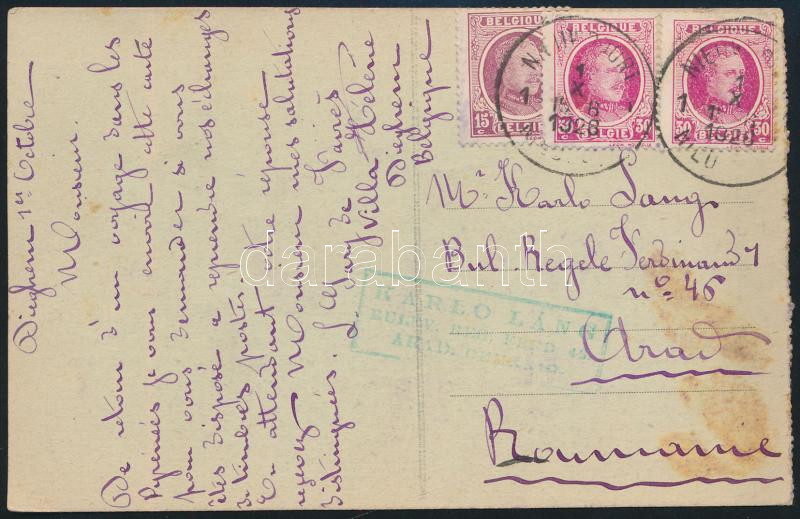 Dieghem 1er Octobre
Monsieur.
De retour d'un voyage dans les
Pyrenées je vous envoie cette carte
pour vous demander si vous
êtes disposé a reprendre nos échanges
de timbres postes.
En attendant votre réponse
recevez Monsieur mes salutations
distinguées.
Villa Hélène
Dieghem
Belgique
BELGIQUE
15 c
BELGIE
BELGIQUE
30 c
BELGIE 30
BELGIQUE
30 c 30
1
X
1928
1
X
1928
Mr Karlo Lang
Bul Regele Ferdinand 1
no 46
Arad
Roumanie
KARLO LÁNG
ARAD
darabanth